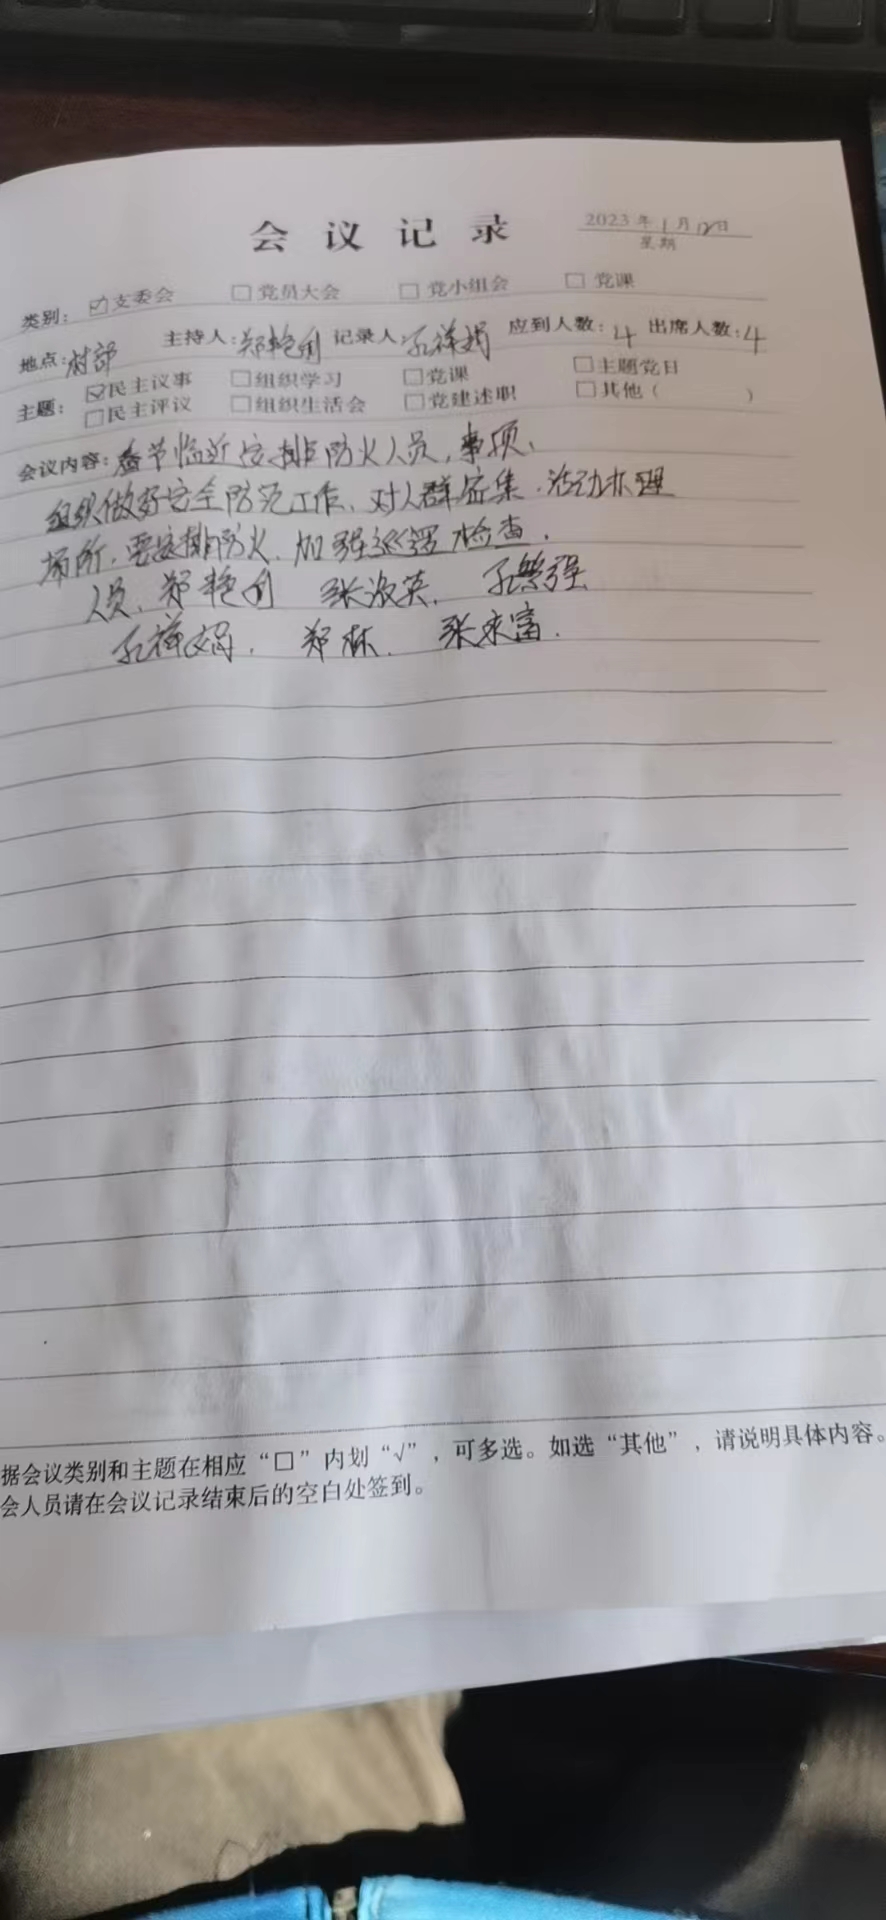 会议记录
2023年1月12日
星期
类别: ☑支委会 □党员大会 □党小组会 □党课
地点:村部 主持人:郑艳利 记录人:孔祥娟 应到人数:4 出席人数:4
主题: ☑民主议事 □组织学习 □党课 □主题党日
□民主评议 □组织生活会 □党建述职 □其他( )
会议内容:春节临近安排防火人员,事项、
组织做好安全防范工作、对人群密集、活动办理
场所,要安排防火、加强巡逻检查.
人员、郑艳利 张淑英、孔繁强
孔祥娟、郑林、张来富.
据会议类别和主题在相应“□”内划“√”,可多选。如选“其他”,请说明具体内容。
会人员请在会议记录结束后的空白处签到。